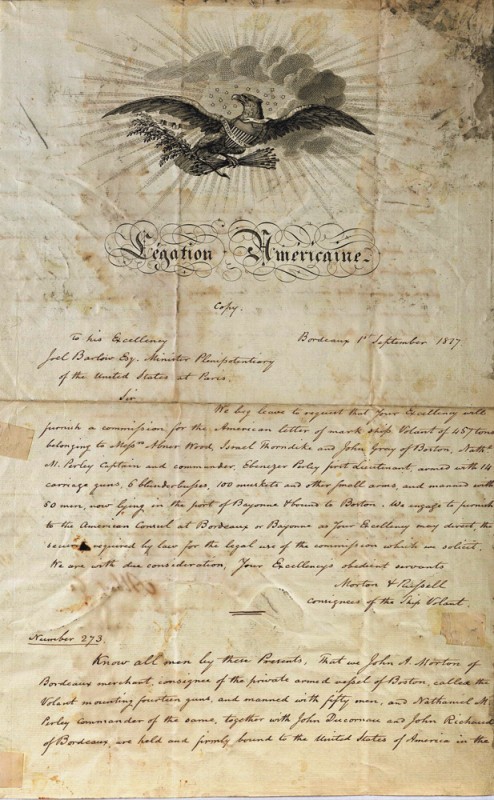 Légation Américaine.
Copy.
Bordeaux 1st September 1817
To his Excellency
Joel Barlow Esq. Minister Plenipotentiary
of the United States at Paris.
Sir
We beg leave to request that Your Excellency will
furnish a commission for the American letter of mark ship Volant of 457 tons
belonging to Messrs Abner Wood, Israel Thorndike and John Gray of Boston, Nathl
M. Perley Captain and commander, Ebenezer Perley first Lieutenant, armed with 14
carriage guns, 6 blunderbusses, 100 muskets and other small arms, and manned with
50 men, now lying in the port of Bayonne & bound to Boston. We engage to furnish
to the American Consul at Bordeaux or Bayonne as Your Excellency may direct, the
required by law for the legal use of the commission which we solicit.
We are with due consideration, Your Excellencys obedient servants
Morton & Russell
consignees of the Ship Volant.
Number 273.
Know all men by these Presents, That we John A. Morton of
Bordeaux merchant, consignee of the private armed vessel of Boston, called the
Volant mounting fourteen guns, and manned with fifty men, and Nathaniel M.
Perley commander of the same, together with John Ducornau and John Richard
of Bordeaux, are held and firmly bound to the United States of America in the